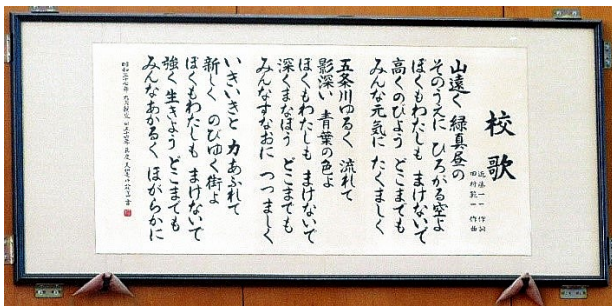 校歌
近藤一一 作詞
田村範一 作曲
山遠く 緑真昼の
そのうえに ひろがる空よ
ぼくもわたしも まけないで
高くのびよう どこまでも
みんな元気に たくましく
五条川ゆるく 流れて
影深い 青葉の色よ
ぼくもわたしも まけないで
深くまなぼう どこまでも
みんなすなおに つつましく
いきいきと 力あふれて
新しく のびゆく街よ
ぼくもわたしも まけないで
強く生きよう どこまでも
みんなあかるく ほがらかに